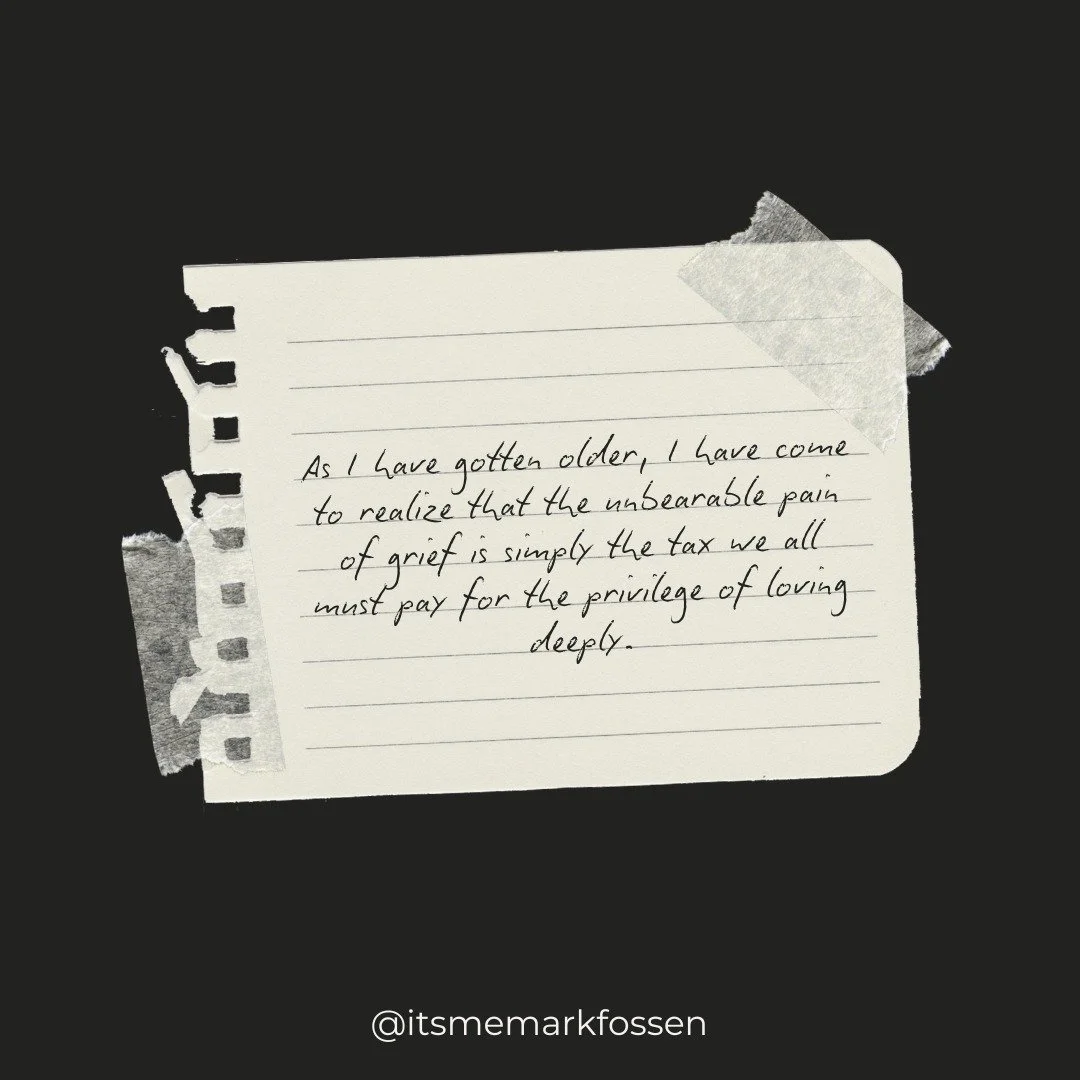 As I have gotten older, I have come
to realize that the unbearable pain
of grief is simply the tax we all
must pay for the privilege of loving
deeply.
@itsmemarkfossen